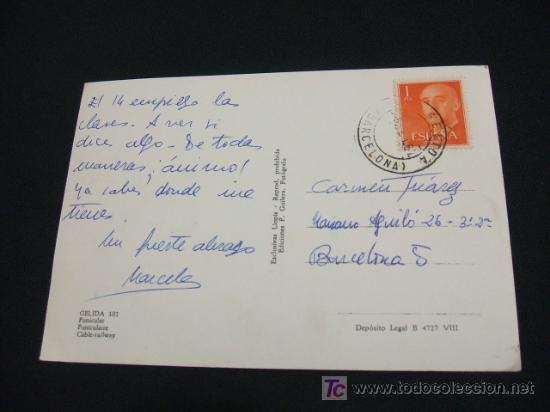 El 14 empiezo las
clases. A ver si
dice algo - De todas
maneras ¡ánimo!
ya sabes donde me
tienes.
Un fuerte abrazo
Marcela
GELIDA 102
Funicular
Funiculaire
Cable-railway
Exclusivas Llopis - Reprod. prohibida
Ediciones F. Guilera, Fotógrafo
1
ESPAÑA
(BARCELONA)
Carmen Juárez
Mariano Aguiló 26 - 3º 2ª
Barcelona 5
Depósito Legal B 4727 VIII
TC todocoleccion
www.todocoleccion.net